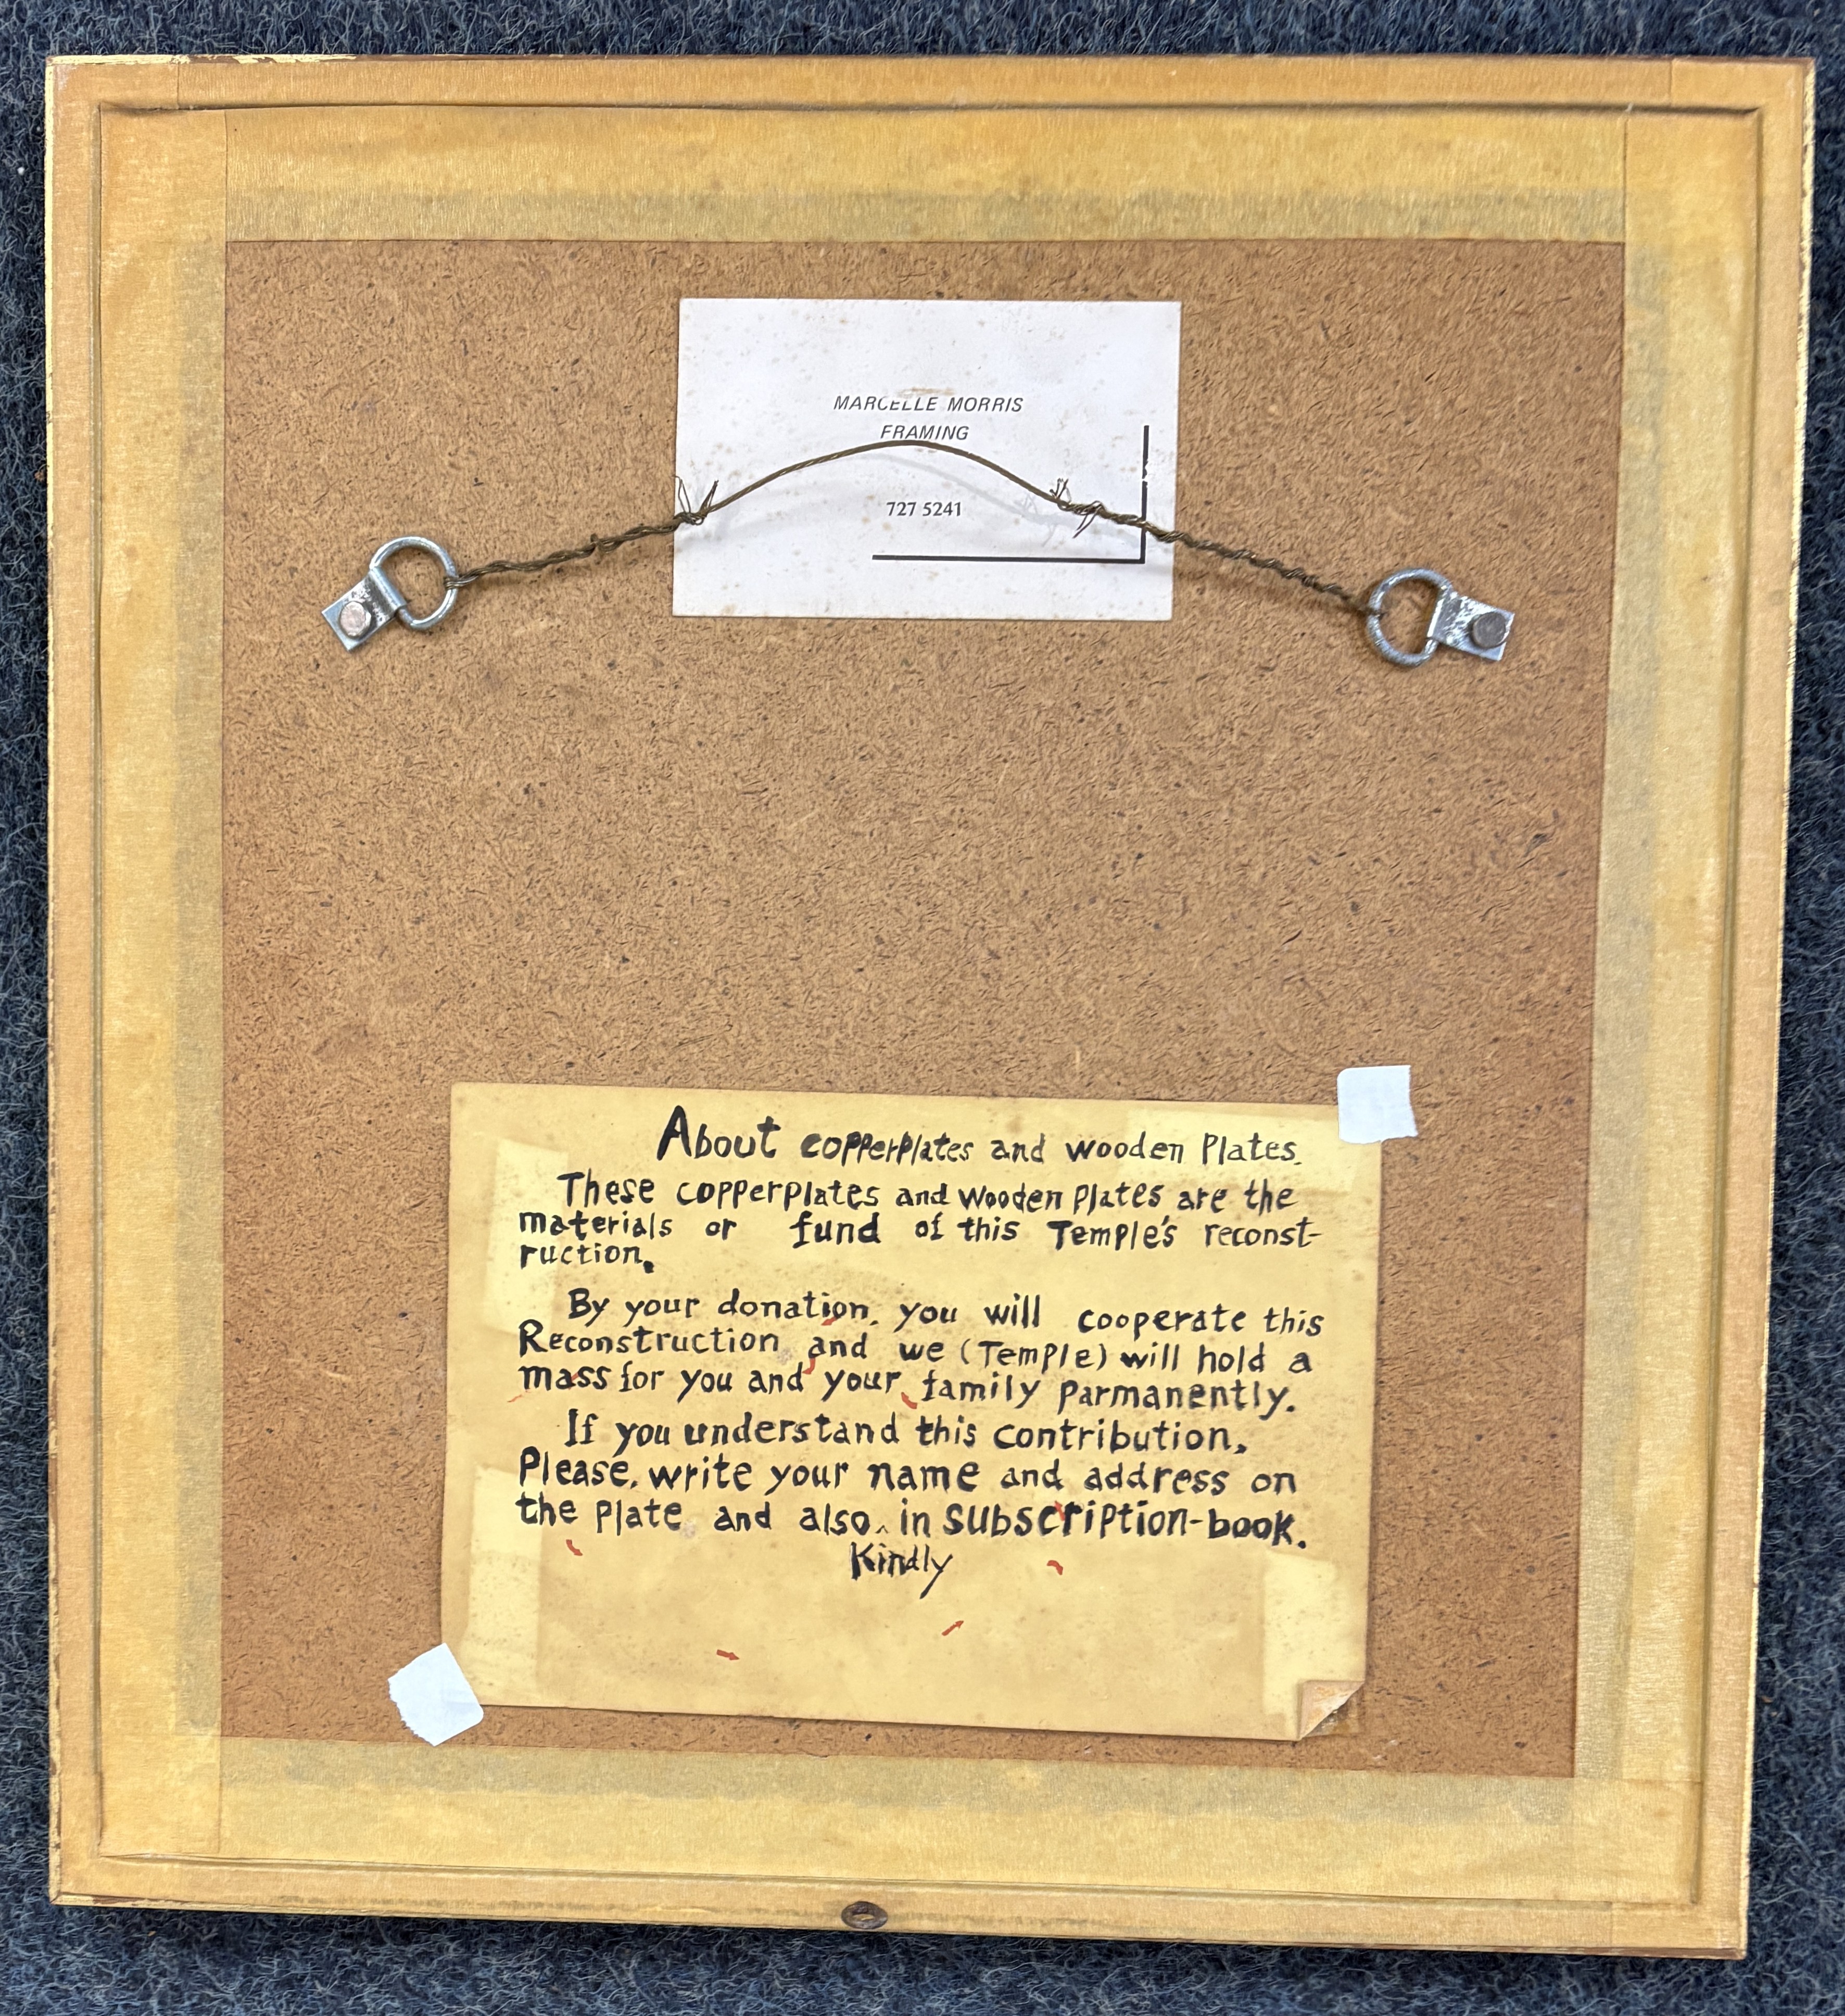 MARCELLE MORRIS
FRAMING
727 5241
About copperplates and wooden Plates.
These copperplates and wooden plates are the
materials or fund of this Temple's reconst-
ruction.
By your donation, you will cooperate this
Reconstruction and we (Temple) will hold a
mass for you and your family parmanently.
If you understand this contribution,
Please, write your name and address on
the Plate and also ^ in subscription-book.
Kindly